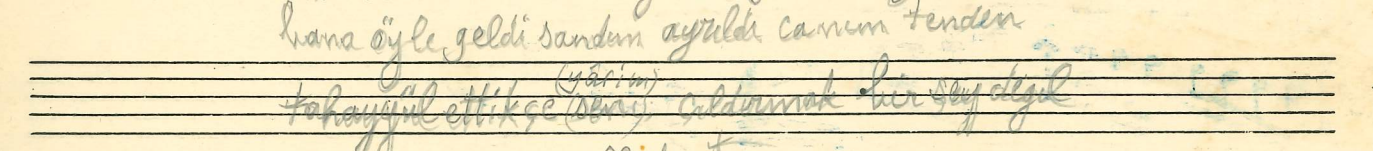 bana öyle geldi sandım ayrıldı canım tenden
(yârim)
tahayyül ettikçe (seni) çıldırmak bir şey değil